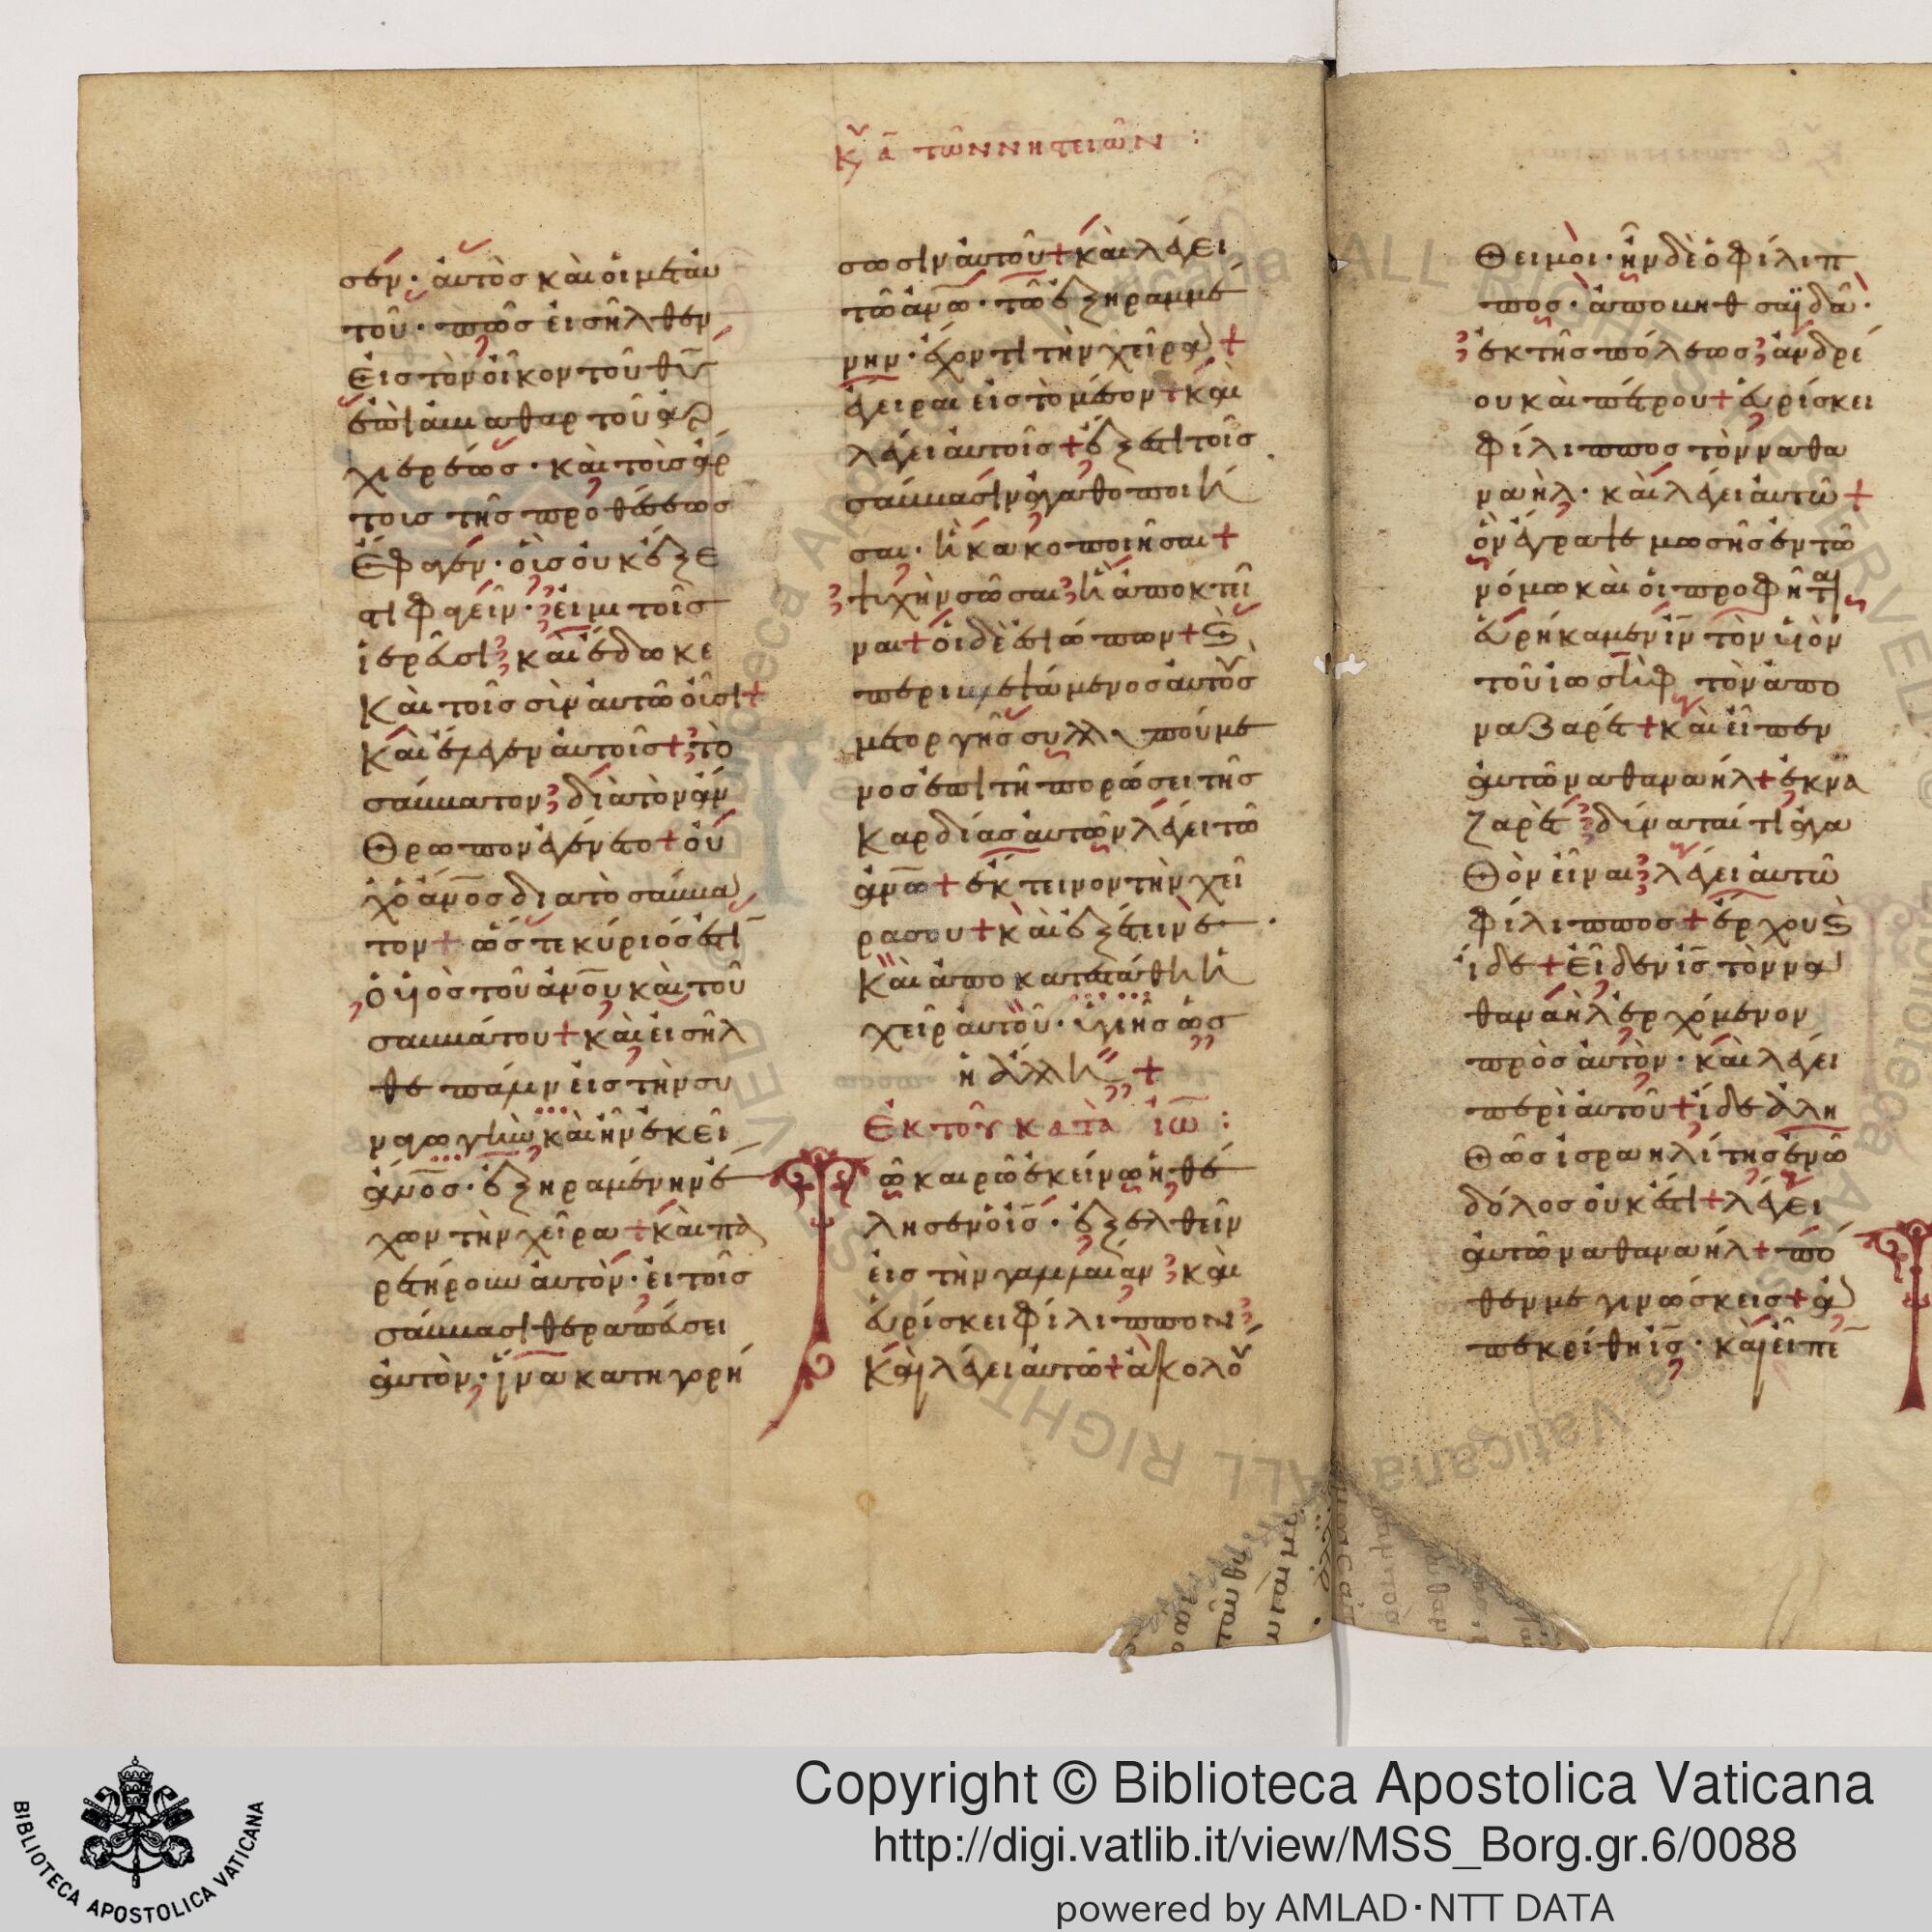 Κυ α τῶν νηστειῶν :
σέν· ἀυτὸς καὶ οἱ μετ ἀυ
τοῦ· πῶς εἰσῆλθεν
εἰς τὸν οἶκον τοῦ θυ
ἐπὶ ἀβιαθαρ τοῦ ἀρ
χιερέως· καὶ τοὺς ἄρ
τοις τῆς προθέσεως
ἔφαγεν· οἷς οὐκ ἔξε
στι φαγεῖν· εἰ μι τοῖς
ἱερεῦσι καὶ ἔδωκε
καὶ τοῖς σὶν ἀυτῶ οὖσι+
καὶ ἔλεγεν ἀυτοῖς+ τὸ
σάββατον διὰ τὸν ἄν
θρωπον ἐγένετο+ οὐ
χ ὁ ἄνος διὰ τὸ σάββα
τον+ ὥστε κύριός ἐστι
ὁ υἱὸς τοῦ ἀνου καὶ τοῦ
σαββάτου+ καὶ εἰσῆλ
θε πάλιν εἰς τὴν συ
ναγωγὴν καὶ ἦν ἐκεῖ
ἄνος· ἐξηραμένην ἔ
χων τὴν χεῖρα+ καὶ πα
ρετήρουν ἀυτὸν· εἰ τοῖς
σάββασι θεραπεύσει
ἀυτὸν· ἵνα κατηγορή
σωσιν ἀυτοῦ+ καὶ λέγει
τῶ ἀνω· τῶ ἐξηραμμέ
νην· ἔχοντι τὴν χεῖρα+
ἔγειραι εἰς τὸ μέσον+ καὶ
λέγει ἀυτοῖς+ ἔξεστι τοῖς
σάββασιν ἀγαθοποιῆ
σαι· ἢ κακοποιῆσαι+
ψιχὴν σῶσαι ἢ ἀποκτεῖ
ναι+ οἱ δὲ ἐσιώπων+ Ϛ
περιβλεψάμενος ἀυτοὺς
μετ οργῆς συλλυπούμε
νος ἐπὶ τῆ πορώσει τῆς
καρδίας ἀυτῶν λέγει τῶ
ἀνω+ ἔκτεινον τὴν χεῖ
ρα σου+ καὶ ἐξέτεινε·
καὶ ἀποκατεστάθη ἡ
χεὶρ ἀυτοῦ· ὑγιὴς ὡς
ἡ ἄλλη+
Ἐκ τοῦ κατὰ ἰω :
Τῶ καιρῶ ἐκείνω ἠθέ
λησεν ὁ ις· ἐξελθεῖν
εἰς τὴν γαλιλαίαν καὶ
ἑυρίσκει φίλιππον
καὶ λέγει ἀυτῶ+ ἀκολού
θει μοι· ἦν δὲ ὁ φίλιπ
πος· ἀπο βηθσαϊδὰ·
ἐκ τῆς πόλεως ἀνδρέ
ου καὶ πέτρου+ ἑυρίσκει
φίλιππος τὸν ναθα
ναὴλ· καὶ λέγει ἀυτῶ+
ὃν ἔγραψε μωσῆς ἐν τῶ
νόμω καὶ οἱ προφῆται
ἑυρήκαμεν ιν τὸν υἱὸν
τοῦ ἰωσὴφ τὸν ἀπο
ναζαρέτ+ καὶ εἶπεν
ἀυτῶ ναθαναὴλ+ ἐκ να
ζαρὲτ δίναταί τι ἀγα
θὸν εἶναι λέγει ἀυτῶ
φίλιππος+ ἔρχου Ϛ
ἴδε+ εἶδεν ις τὸν να
θαναὴλ ἐρχόμενον
πρὸς ἀυτὸν· καὶ λέγει
περὶ ἀυτοῦ+ ἴδε ἀλη
θῶς ισραηλίτης ἐν ῶ
δόλος οὐκ ἔστι+ λέγει
ἀυτῶ ναθαναήλ+ πό
θεν με γινώσκεις+ ἀ
πεκρίθη ις· καὶ εἶπε
BIBLIOTECA APOSTOLICA VATICANA
Copyright © Biblioteca Apostolica Vaticana
http://digi.vatlib.it/view/MSS_Borg.gr.6/0088
powered by AMLAD·NTT DATA